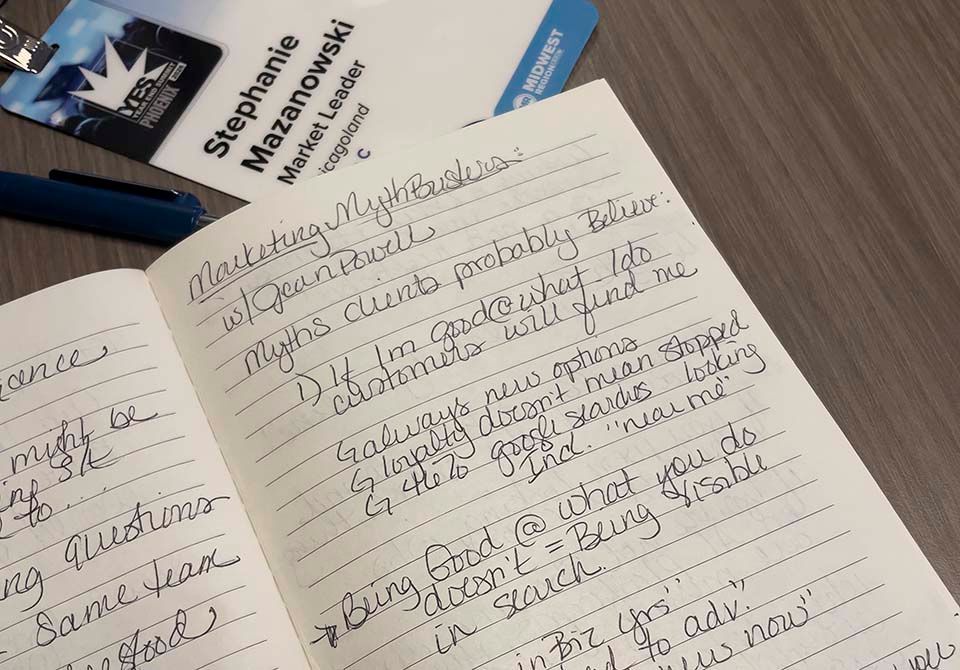 YES
YEAR END SUMMIT
PHOENIX
Stephanie
Mazanowski
Market Leader
icagoland
C
MIDWEST
REGION
icence
might be
to...
questions
Same team
stood
Marketing MythBusters:
w/ Jean Powell
Myths clients probably Believe:
1) If Im good @ what I do
customers will find me
↳ always new options
↳ loyalty doesn't mean stopped looking
↳ 46% google searches
Incl. "near me"
* Being Good @ what you do
doesn't = Being visible
in search.
in Biz yrs"
to adv."
now"
you